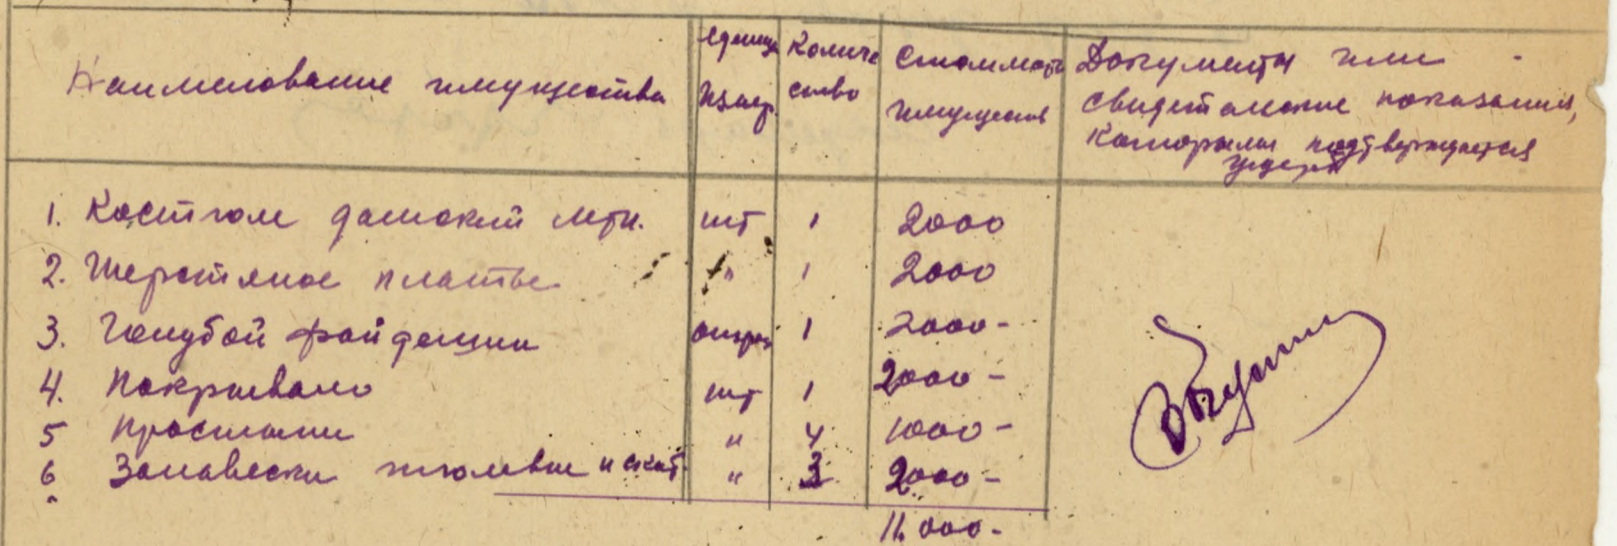 Наименование имущества Единица измер. Количество Стоимость имуществ Документы или свидетельские показания, которыми подтверждается ущерб
1. Костюм дамский шт 1 2000
2. Шерстяное платье " 1 2000
3. Голубой отрез 1 2000-
4. Покрывало шт 1 2000-
5 Простыни " 4 1000-
6 Занавески тюлевые и " 3 2000-
11.000-